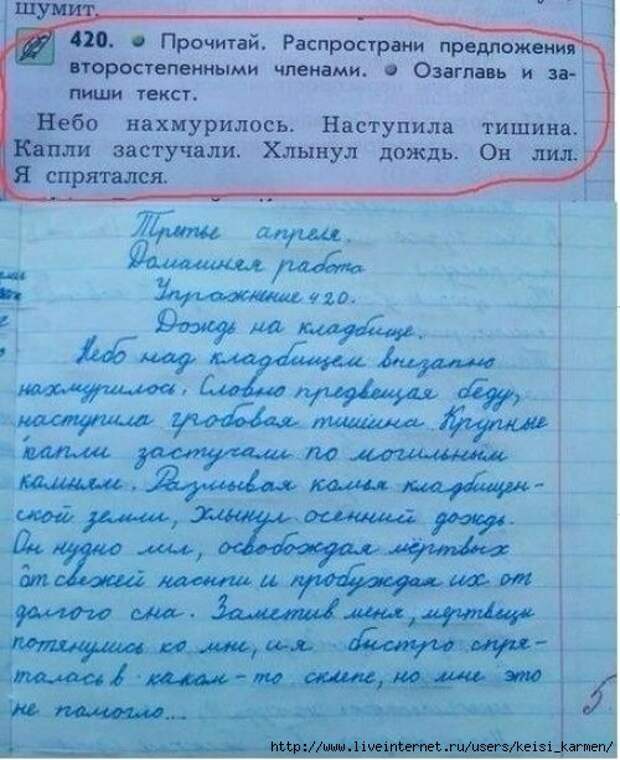 шумит.
420. Прочитай. Распространи предложения
второстепенными членами. Озаглавь и за-
пиши текст.
Небо нахмурилось. Наступила тишина.
Капли застучали. Хлынул дождь. Он лил.
Я спрятался.
Третье апреля.
Домашняя работа
Упражнение 420.
Дождь на кладбище.
Небо над кладбищем внезапно
нахмурилось. Словно предвещая беду,
наступила гробовая тишина. Крупные
капли застучали по могильным
камням. Размывая комья кладбищен-
ской земли, хлынул осенний дождь.
Он нудно лил, освобождая мёртвых
от свежей насыпи и пробуждая их от
долгого сна. Заметив меня, мертвецы
потянулись ко мне, и я быстро спря-
талась в каком-то склепе, но мне это
не помогло...
5
http://www.liveinternet.ru/users/keisi_karmen/